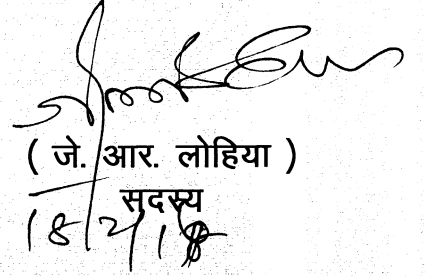 ( जे. आर. लोहिया )
सदस्य
18/2/18